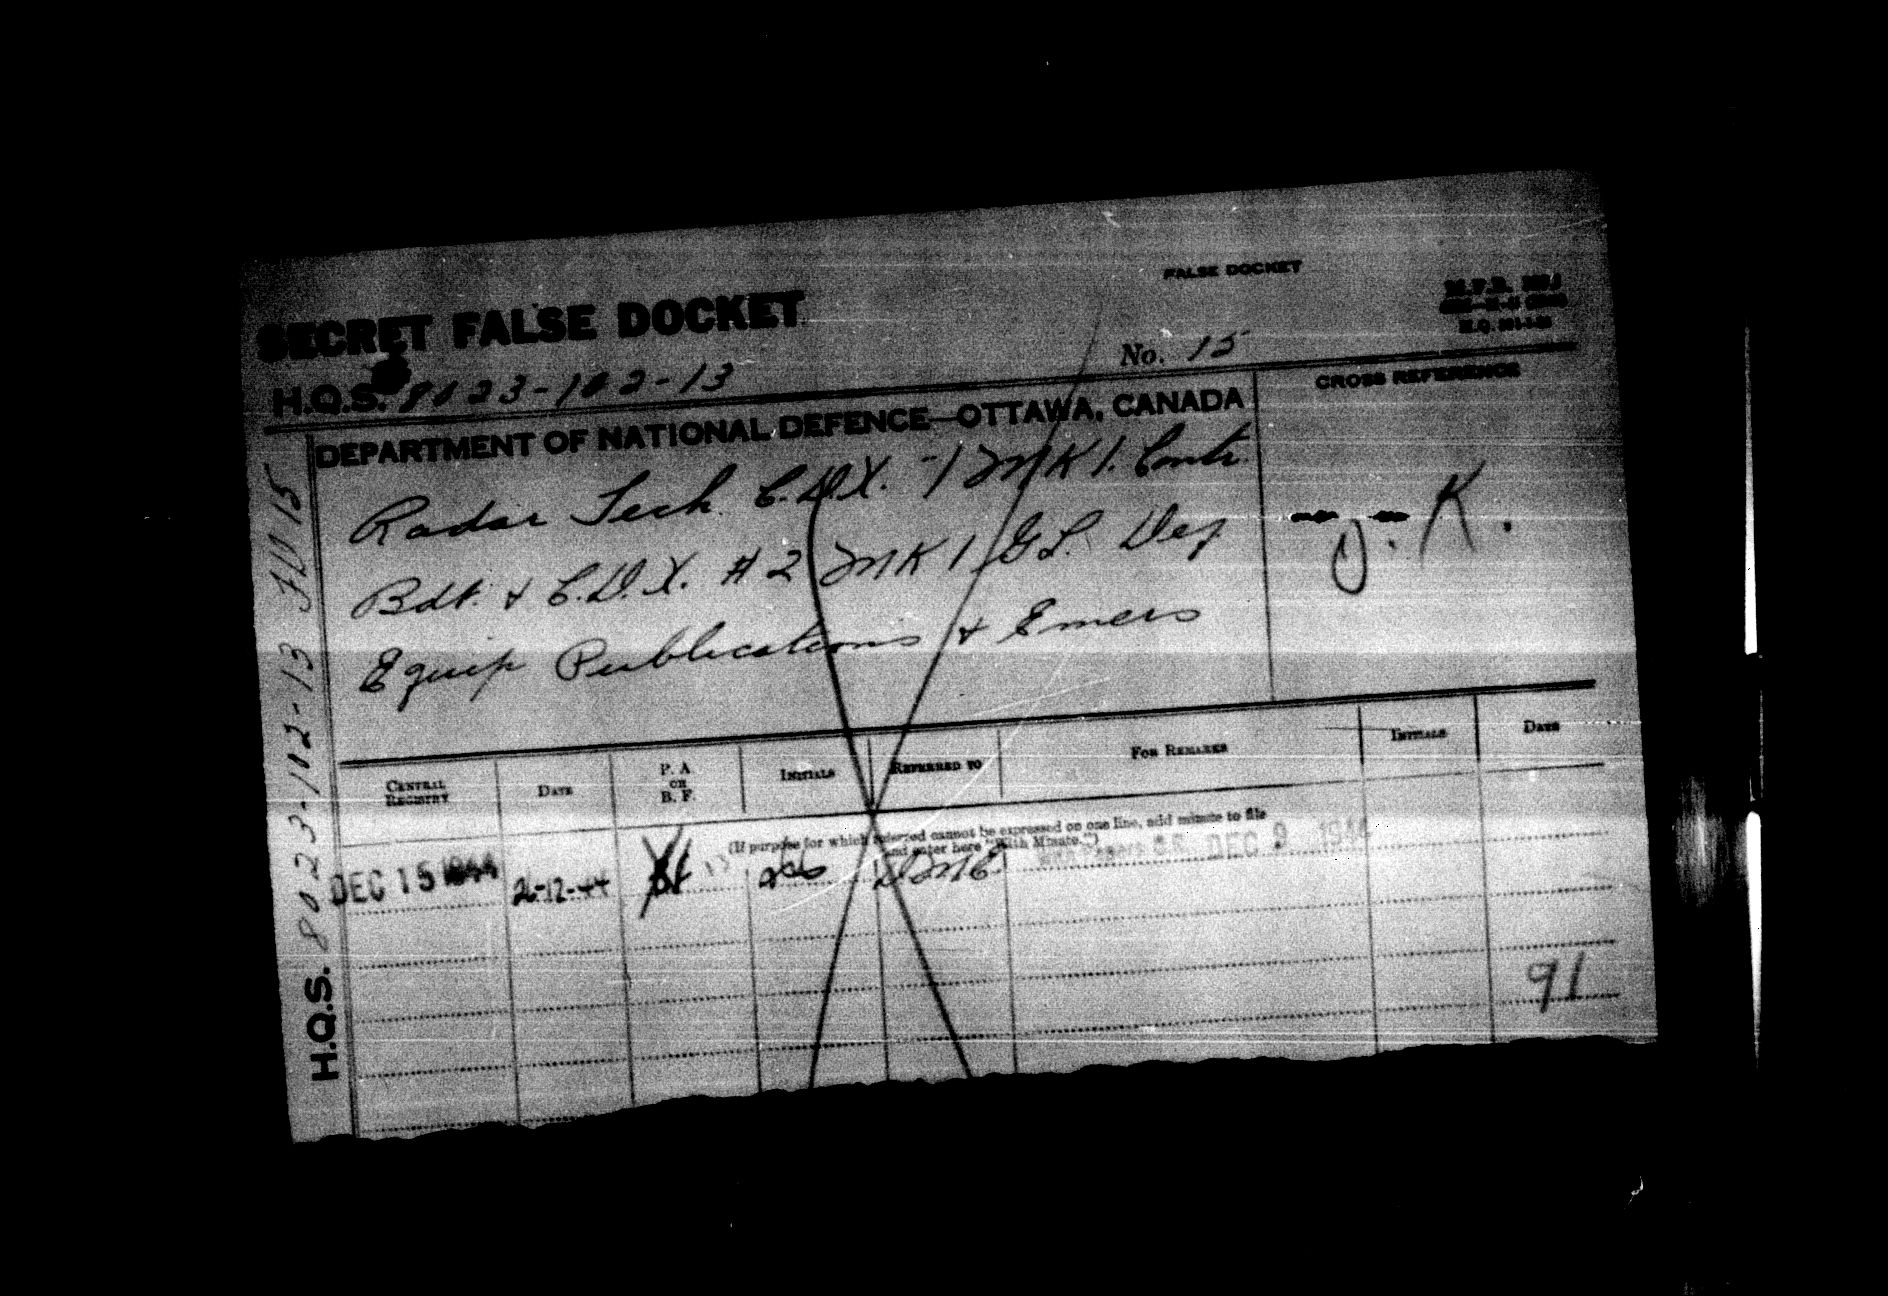 FALSE DOCKET
SECRET FALSE DOCKET
H.Q.S. 8023-102-13
No. 15
DEPARTMENT OF NATIONAL DEFENCE—OTTAWA, CANADA
CROSS REFERENCE
Radar Tech. C.D.X. -1 MK 1. Contr.
Bdt. & C.D.X. # 2 MK 1 G.L. Def
Equip Publications & Emers
J. K.
H.Q.S. 8023-102-13 FD 15
CENTRAL REGISTRY
DATE
P. A. OR B. F.
INITIALS
REFERRED TO
FOR REMARKS
INITIALS
DATE
(If purpose for which referred cannot be expressed on one line, add minute to file
and enter here "With Minute.")
DEC 15 1944
26-12-44
DME
DEC 9 1944
91